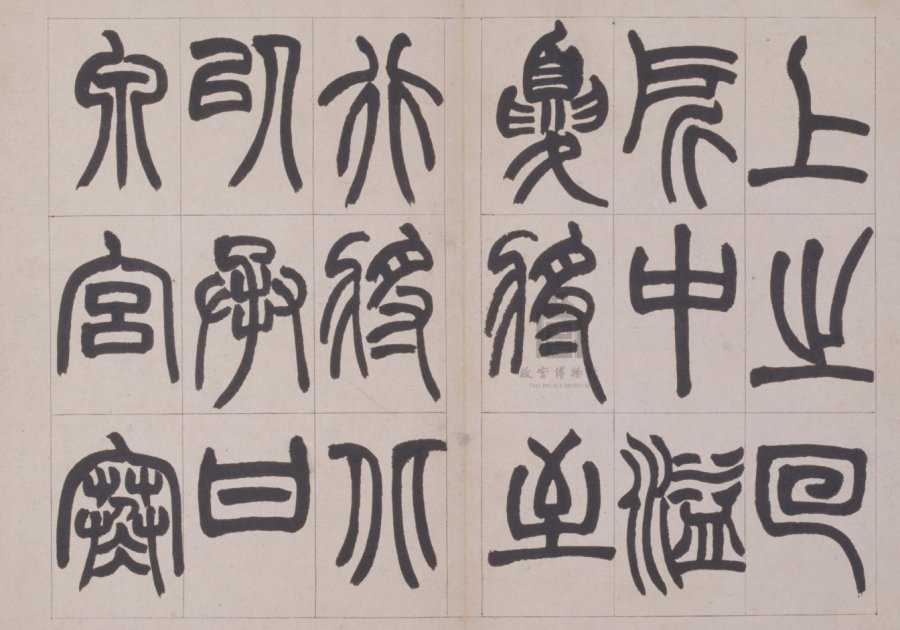 上之回
所中溢
夏將至
行將北
以承甘
泉宮寒
故宫博物
THE PALACE MUSEUM